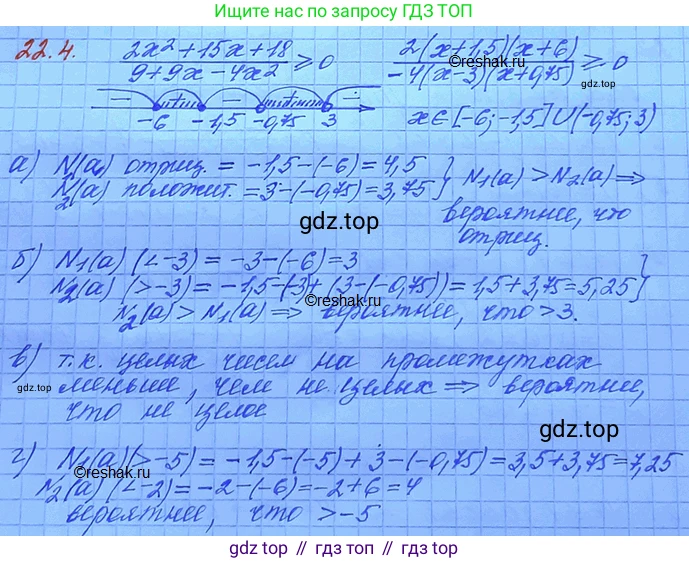 Ищите нас по запросу ГДЗ ТОП
22.4. (2x²+15x+18)/(9+9x-4x²) ≥ 0 (2(x+1,5)(x+6))/(-4(x-3)(x+0,75)) ≥ 0
gdz.top
©reshak.ru
- + - + -
-6 -1,5 -0,75 3
x∈[-6;-1,5]∪(-0,75;3)
а) N₁(a) отриц. = -1,5-(-6)=4,5
N₂(a) положит. = 3-(-0,75)=3,75 } N₁(a)>N₂(a)⇒
вероятнее, что
отриц.
gdz.top
б) N₁(a) (<-3) = -3-(-6)=3
N₂(a) (>-3) = -1,5-(-3)+(3-(-0,75))=1,5+3,75=5,25}
©reshak.ru
N₂(a)>N₁(a)⇒ вероятнее, что >3.
в) т.к. целых чисел на промежутках
меньше, чем не целых ⇒ вероятнее,
что не целое
gdz.top
gdz.top
г) N₁(a)(>-5) = -1,5-(-5)+3-(-0,75)=3,5+3,75=7,25
©reshak.ru
N₂(a) (<-2)=-2-(-6)=-2+6=4
вероятнее, что >-5
gdz top // гдз топ // gdz.top